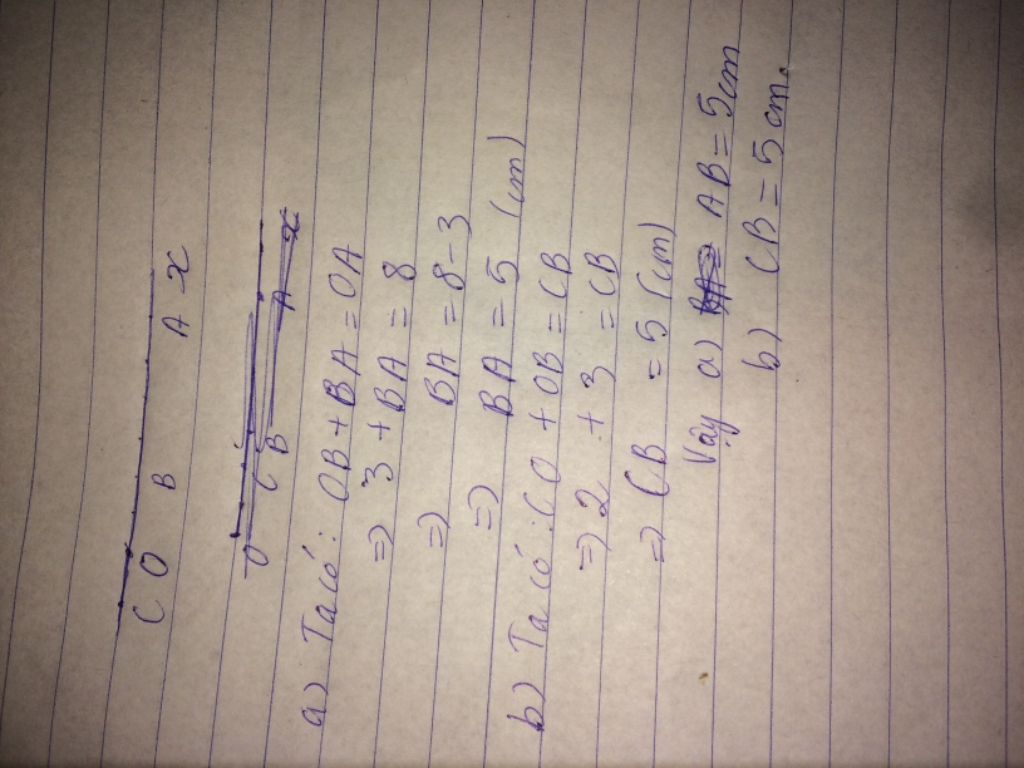 C O B A x
O C B A x
a) Ta có: OB + BA = OA
=> 3 + BA = 8
=> BA = 8 - 3
=> BA = 5 (cm)
b) Ta có: CO + OB = CB
=> 2 + 3 = CB
=> CB = 5 (cm)
Vậy a) AB = 5cm
b) CB = 5 cm.